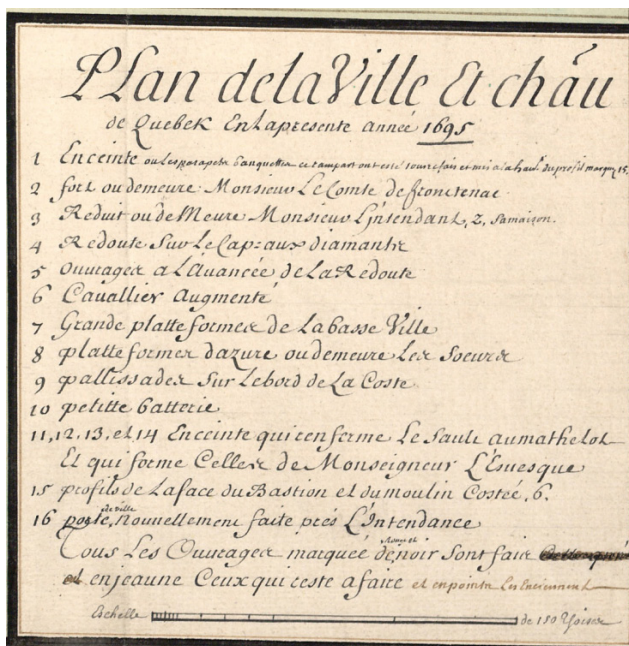 PLan de la Ville Et chãu
de Quebek En La presente année 1695
1 Enceinte ou Les parapets banquettes ce rampart ont esté tout refais et mis a la haut.r du profil marqué 15.
2 fort ou demeure Monsieur Le Comte de frontenac
3 Reduit ou de Meure Monsieur L'intendant, Z, sa maison.
4 Redoute Sur Le Cap=aux diamants
5 ouurages a L'auancée de La Redoute
6 Cauallier augmenté
7 Grande platte formes de La basse Ville
8 platte formes dazure ou demeure Les Soeurs
9 pallissades Sur Le bord de La Coste
10 petitte batterie
11, 12, 13, et 14 Enceinte qui renferme Le Sault au mathelot
Et qui forme Celles de Monseigneur L'Euesque
15 profils de La face du Bastion et du moulin Costée, 6.
16 porte, de ville nouuellement faite prés L'Intendance
Tous Les Ouurages marquée de noir Sont fair
et en jeaune Ceux qui reste a faire et en pointé Les Anciennes
Eschelle de 150 Toises